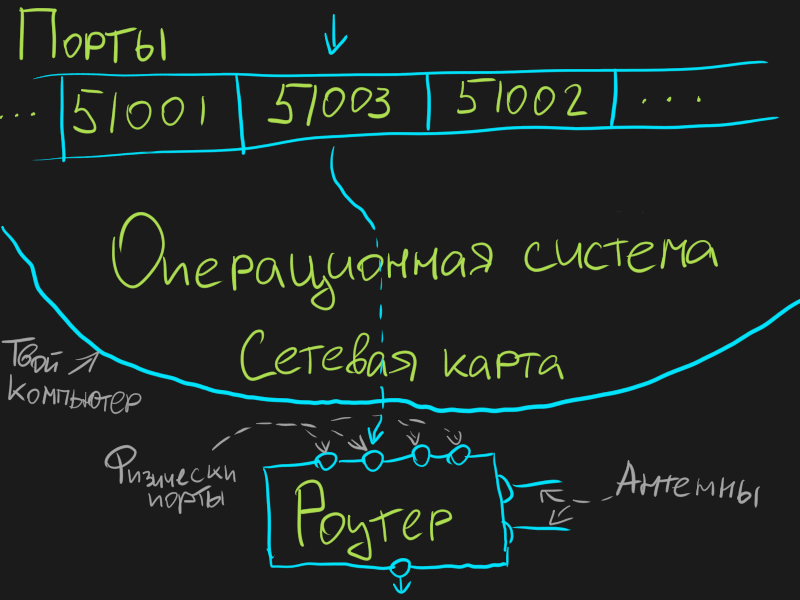 Порты
... 51001 51003 51002 ...
Операционная система
Сетевая карта
Твой
компьютер
Физически
порты
Антенны
Роутер